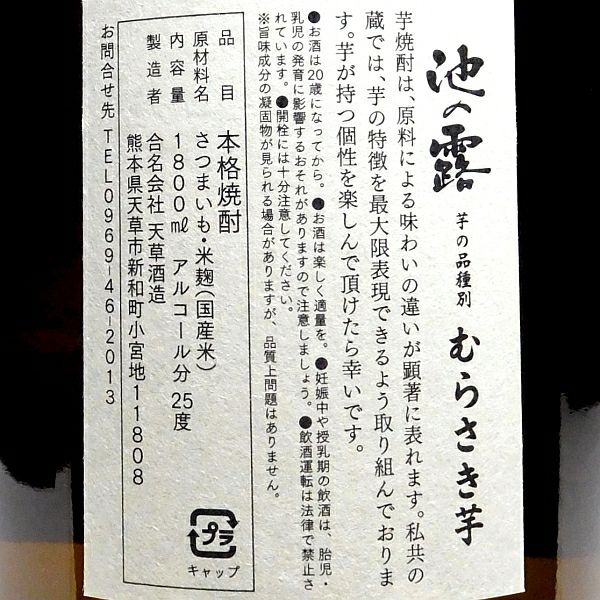 池の露 芋の品種別 むらさき芋
芋焼酎は、原料による味わいの違いが顕著に表れます。私共の
蔵では、芋の特徴を最大限表現できるよう取り組んでおりま
す。芋が持つ個性を楽しんで頂けたら幸いです。
●お酒は20歳になってから。●お酒は楽しく適量を。●妊娠中や授乳期の飲酒は、胎児・
乳児の発育に影響するおそれがありますので注意しましょう。●飲酒運転は法律で禁止さ
れています。●開栓には十分注意してください。
※旨味成分の凝固物が見られる場合がありますが、品質上問題はありません。
品目 本格焼酎
原材料名 さつまいも・米麹(国産米)
内容量 1800㎖ アルコール分 25度
製造者 合名会社 天草酒造
熊本県天草市新和町小宮地11808
お問合せ先 TEL0969-46-2013
プラ
キャップ